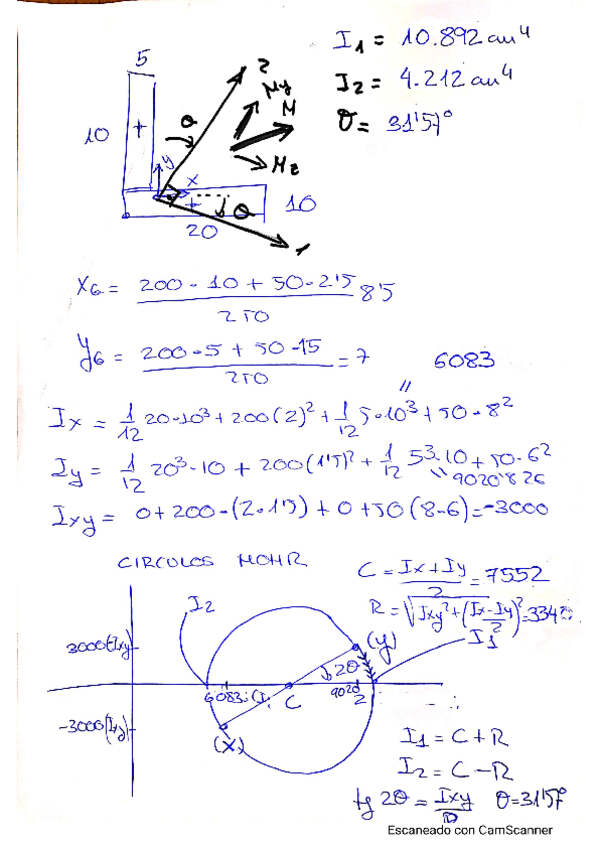 I1 = 10.892 cm⁴
I2 = 4.212 cm⁴
θ = 31'57°
5
2
My
M
Mz
θ
10
y
x
θ
10
20
1
XG = (200 · 10 + 50 · 2'5) / 250 8'5
YG = (200 · 5 + 50 · 15) / 250 = 7
6083
Ix = 1/12 20·10³ + 200(2)² + 1/12 5·10³ + 50·8²
Iy = 1/12 20³·10 + 200(1'5)² + 1/12 5³·10 + 50·6²
9020'826
Ixy = 0 + 200·(2·1'5) + 0 + 50(8·-6) = -3000
CIRCULOS MOHR
C = (Ix + Iy) / 2 = 7552
R = √(Ixy² + ((Ix - Iy)/2)²) = 3340
I2
(y)
I1
3000(Ixy)
2θ
6083
C
9020
2
-3000(Ixy)
(X)
I1 = C + R
I2 = C - R
tg 2θ = Ixy/D θ = 31'57°
Escaneado con CamScanner